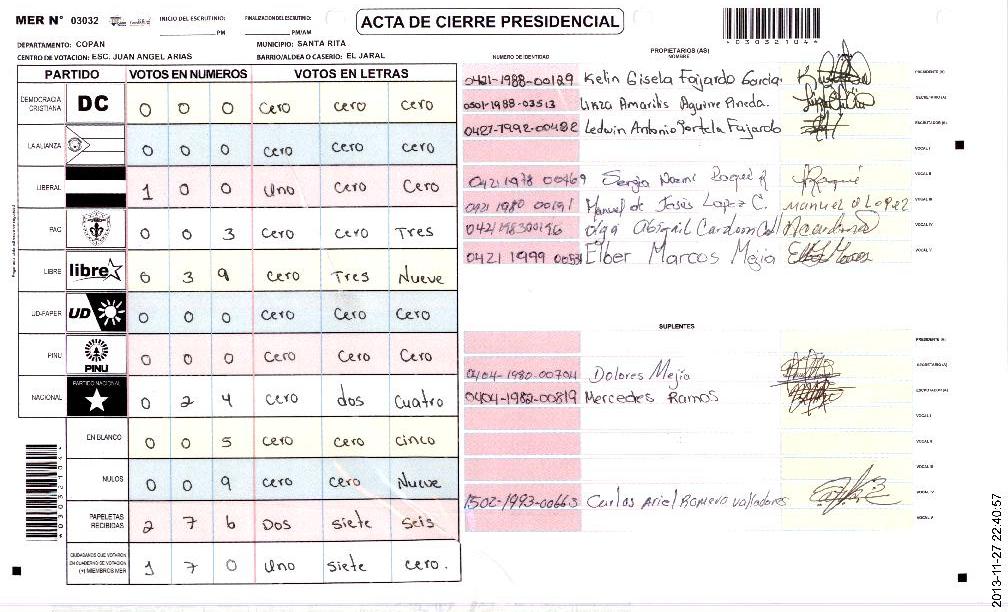 MER N° 03032 INICIO DEL ESCRUTINIO: ____PM FINALIZACION DEL ESCRUTINIO: ____PM/AM
ACTA DE CIERRE PRESIDENCIAL
03032104
DEPARTAMENTO: COPAN MUNICIPIO: SANTA RITA
CENTRO DE VOTACION: ESC. JUAN ANGEL ARIAS BARRIO/ALDEA O CASERIO: EL JARAL
PARTIDO VOTOS EN NUMEROS VOTOS EN LETRAS
DEMOCRACIA CRISTIANA DC 0 0 0 cero cero cero
LA ALIANZA 0 0 0 cero cero cero
LIBERAL 1 0 0 Uno Cero Cero
PAC 0 0 3 Cero Cero Tres
LIBRE libre 0 3 9 Cero Tres Nueve
UD-FAPER UD 0 0 0 Cero Cero Cero
PINU PINU 0 0 0 Cero Cero Cero
NACIONAL PARTIDO NACIONAL 0 2 4 cero dos Cuatro
EN BLANCO 0 0 5 cero cero cinco
NULOS 0 0 9 cero cero Nueve
PAPELETAS RECIBIDAS 2 7 6 Dos siete Seis
CIUDADANOS QUE VOTARON EN CUADERNO DE VOTACION (+) MIEMBROS MER 1 7 0 Uno siete cero.
PROPIETARIOS (AS)
NUMERO DE IDENTIDAD NOMBRE
0421-1988-00129 Kelin Gisela Fajardo Garcia. PRESIDENTE (A)
0501-1988-03513 Linza Amarilis Aguirre Pineda. SECRETARIO (A)
0427-1992-00482 Ledwin Antonio Portela Fajardo ESCRUTADOR (A)
VOCAL I
0421 1978 00469 Sergio VOCAL II
0421 1980 00191 Manuel de Jesús Lopez C. manuel d Lopez VOCAL III
0421198300196 Olga Abigail VOCAL IV
0421 1999 Elber Marcos Mejia VOCAL V
SUPLENTES
PRESIDENTE (A)
0404-1980-00704 Dolores Mejía SECRETARIO (A)
0404-1982-00819 Mercedes Ramos ESCRUTADOR (A)
VOCAL I
VOCAL II
VOCAL III
1502-1993-00663 Carlos Ariel Romero valladares VOCAL IV
VOCAL V
2013-11-27 22:40:57